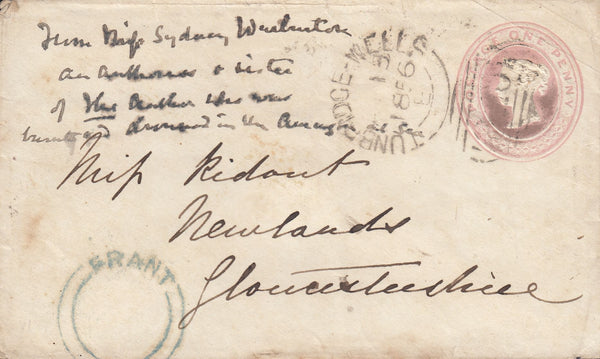 From Miss Sydney Warburton
an authoress & sister
of the Author who was
burnt and drowned in the Amazon at Sea
Miss Ridout
Newlands
Gloucestershire
TUNBRIDGE-WELLS
1856
ONE PENNY
FRANT